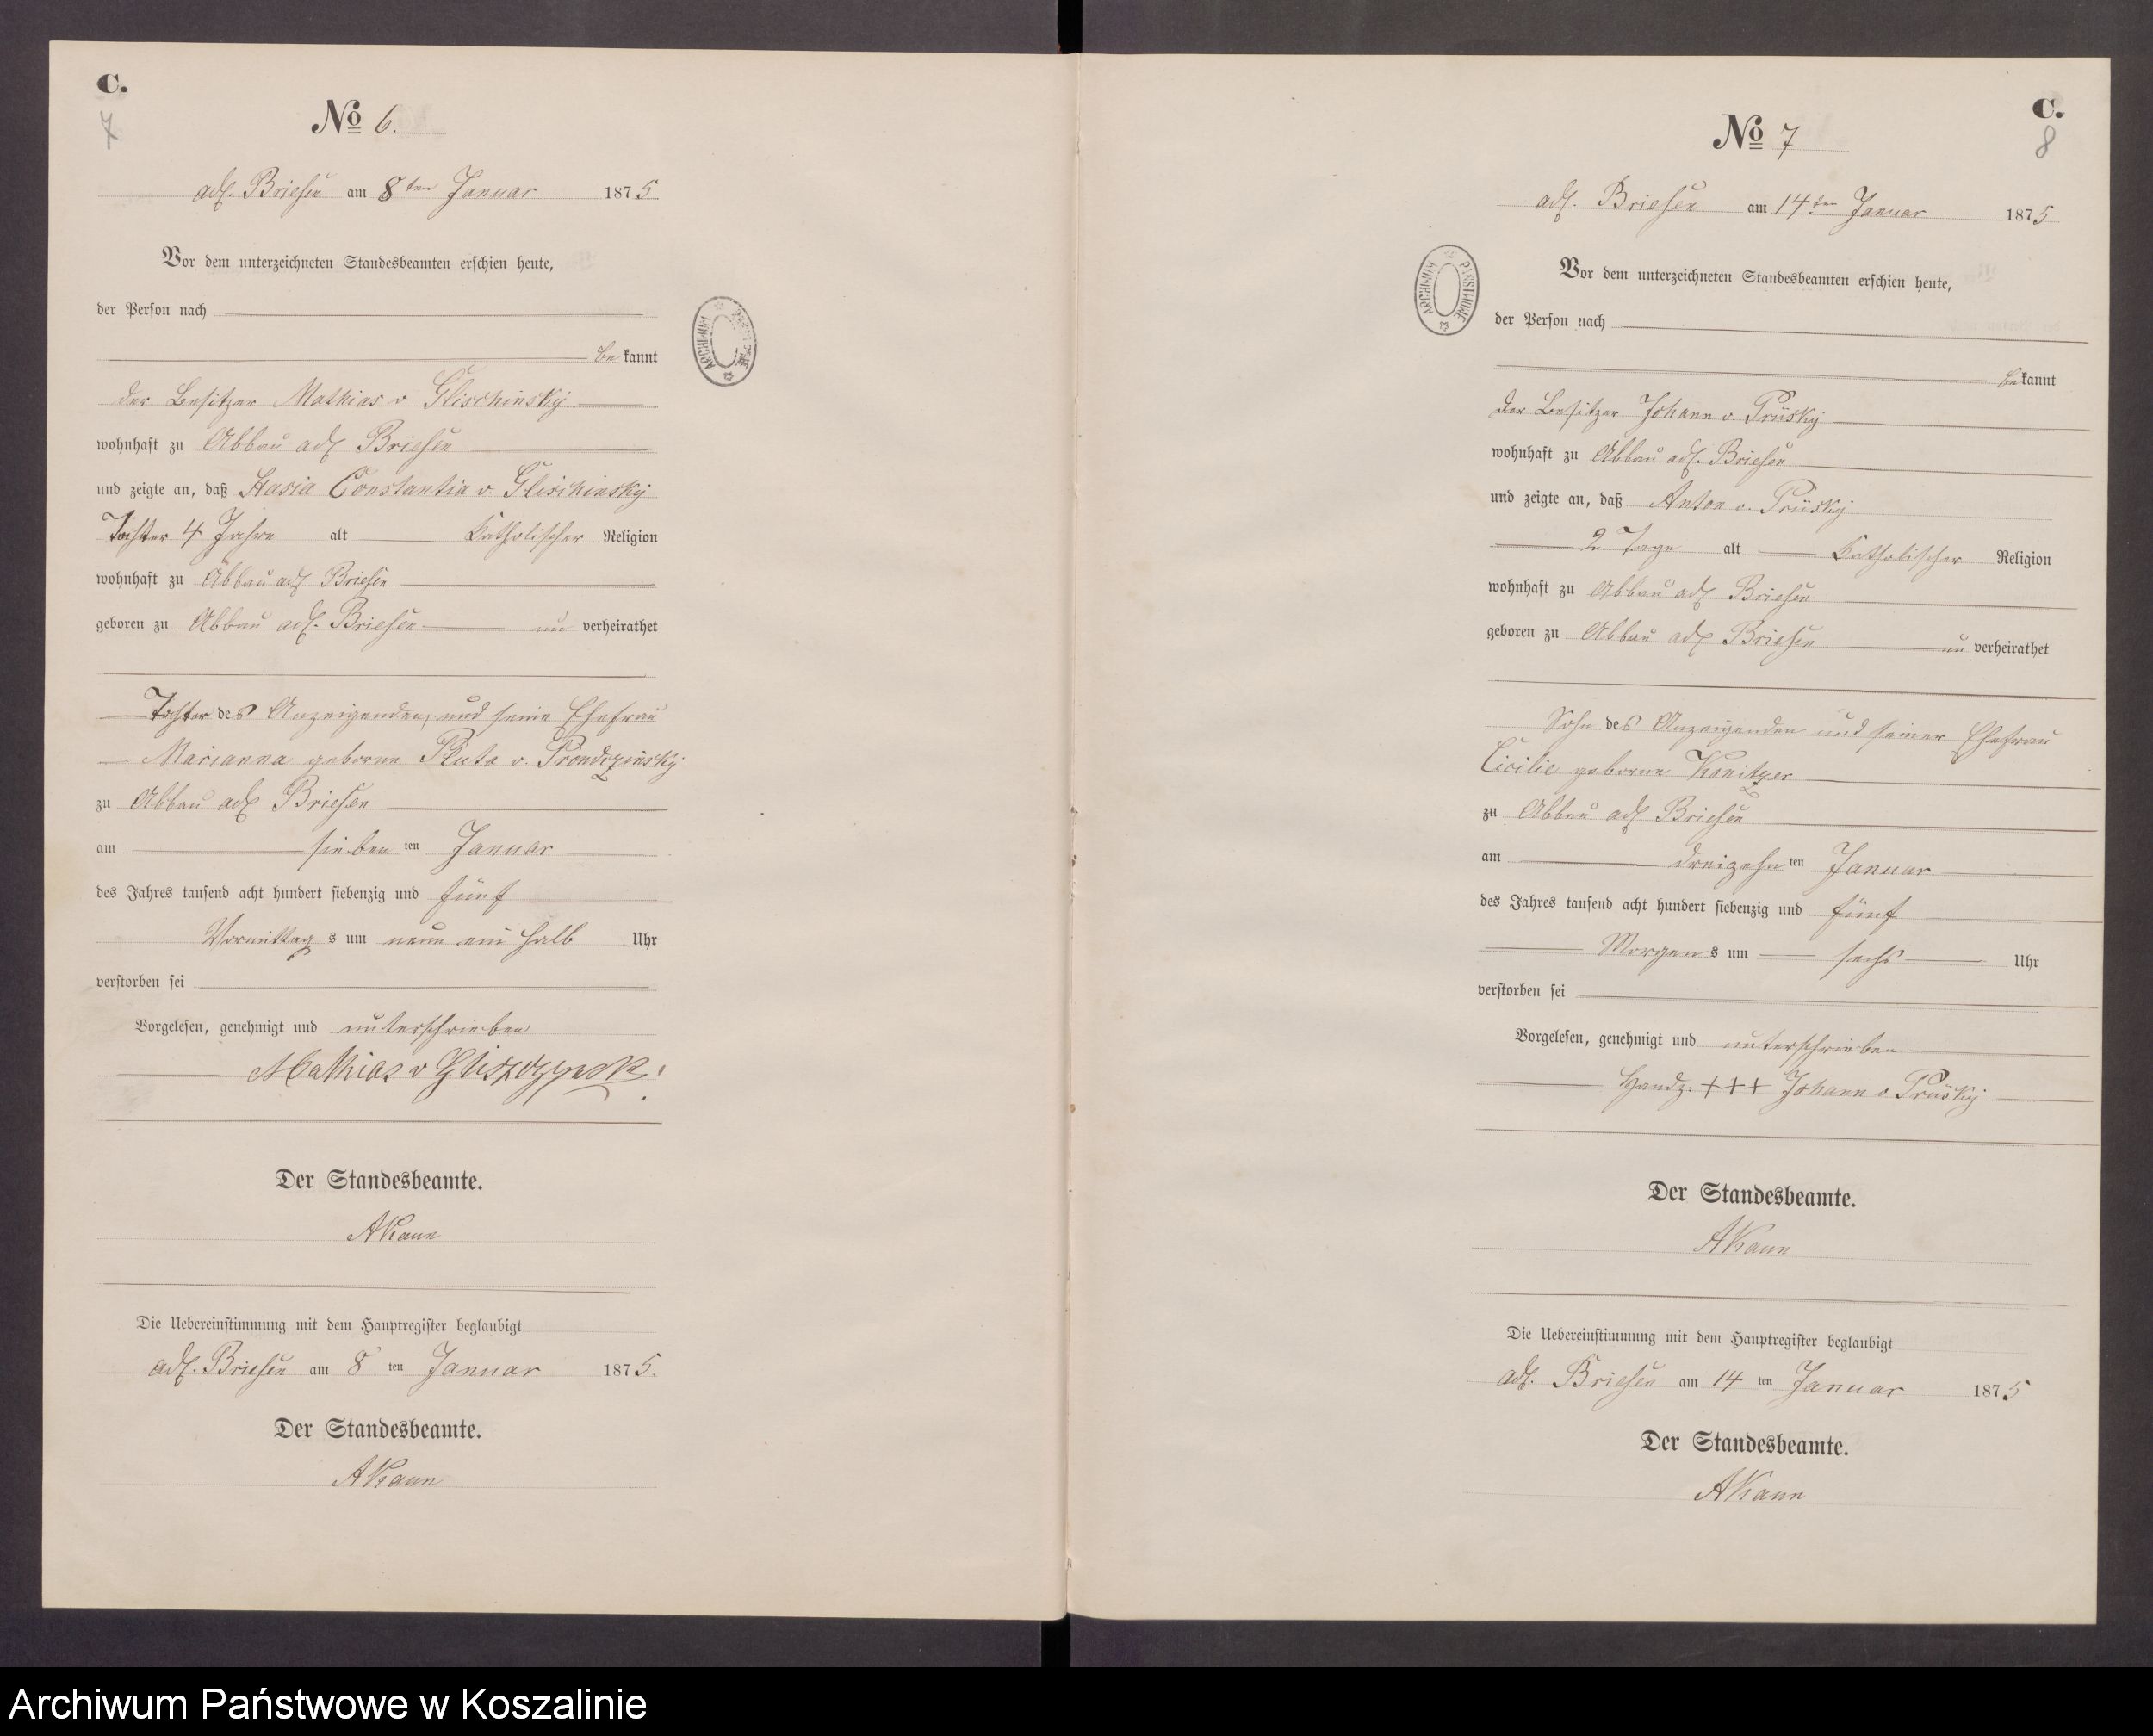 C.
7
No 6.
adl. Briesen am 8ten Januar 1875
Vor dem unterzeichneten Standesbeamten erschien heute,
der Person nach
bekannt
der Besitzer Mathias v Glischinsky
wohnhaft zu Abbau adl Briesen
und zeigte an, daß Constantia v. Glischinsky
Tochter 4 Jahre alt Katholischer Religion
wohnhaft zu Abbau adl Briesen
geboren zu Abbau adl. Briesen unverheirathet
Tochter des Anzeigenden, und seine Ehefrau
Marianna geborne Pluto v. Prondzinsky
zu Abbau adl Briesen
am siebenten Januar
des Jahres tausend acht hundert siebenzig und fünf
Vormittags um neun ein halb Uhr
verstorben sei
Vorgelesen, genehmigt und unterschrieben
Mathias v
Der Standesbeamte.
AKaun
Die Uebereinstimmung mit dem Hauptregister beglaubigt
adl. Briesen am 8 ten Januar 1875.
Der Standesbeamte.
AKaun
ARCHIWUM
C.
8
No 7
adl. Briesen am 14ten Januar 1875
Vor dem unterzeichneten Standesbeamten erschien heute,
der Person nach
bekannt
Der Besitzer Johann v Prüsky
wohnhaft zu Abbau adl. Briesen
und zeigte an, daß Anton v. Prüsky
2 Tage alt Katholischer Religion
wohnhaft zu Abbau adl Briesen
geboren zu Abbau adl Briesen unverheirathet
Sohn des Anzeigenden und seiner Ehefrau
Cicilie geborne Konitzer
zu Abbau adl. Briesen
am dreizehnten Januar
des Jahres tausend acht hundert siebenzig und fünf
Morgens um sechs Uhr
verstorben sei
Vorgelesen, genehmigt und unterschrieben
Handz: +++ Johann v Prüsky
Der Standesbeamte.
AKaun
Die Uebereinstimmung mit dem Hauptregister beglaubigt
adl. Briesen am 14 ten Januar 1875
Der Standesbeamte.
AKaun
ARCHIWUM PAŃSTWOWE
Archiwum Państwowe w Koszalinie